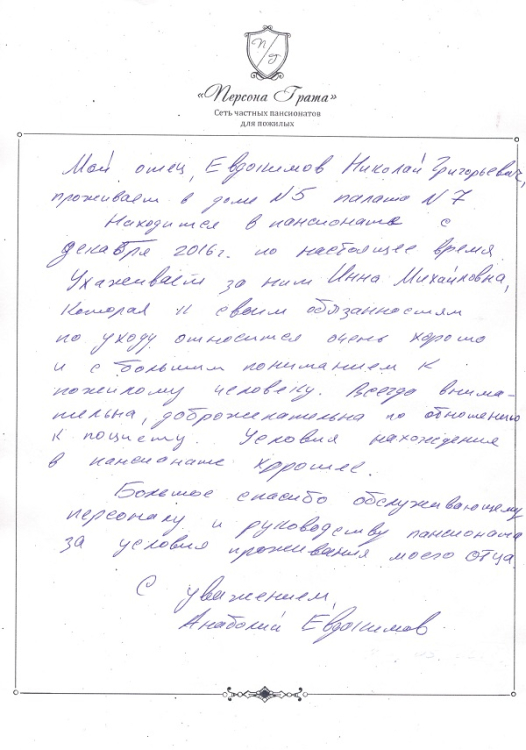 П Г
«Персона Грата»
Сеть частных пансионатов
для пожилых
Мой отец, Евдокимов Николай Григорьевич,
проживает в доме N5 палата N7
Находится в пансионате с
декабря 2016г. по настоящее время.
Ухаживает за ним Инна Михайловна,
которая к своим обязанностям
по уходу относится очень хорошо
и с большим пониманием к
пожилому человеку. Всегда внима-
тельна, доброжелательна по отношению
к . Условия нахождения
в пансионате хорошие.
Большое спасибо обслуживающему
персоналу и руководству пансионата
за условия проживания моего отца
С уважением,
Анатолий Евдокимов